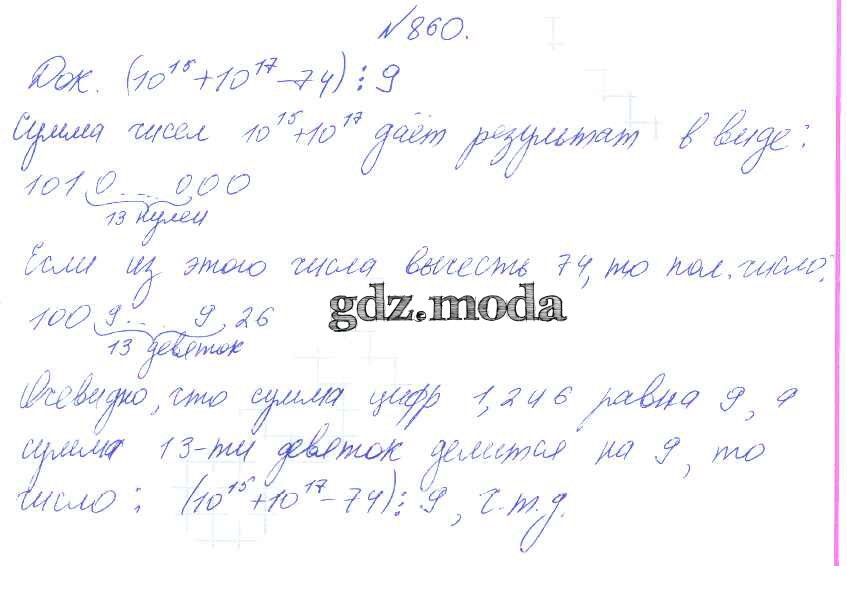 №860.
Док. (10¹⁵+10¹⁷-74)⋮9
Сумма чисел 10¹⁵+10¹⁷ даёт результат в виде:
1010...000
13 нулей
Если из этого числа вычесть 74, то пол. число:
100 9... 9 26
13 девяток
gdz.moda
Очевидно, что сумма цифр 1,2 и 6 равна 9, а
сумма 13-ти девяток делится на 9, то
число: (10¹⁵+10¹⁷-74)⋮9, ч.т.д.